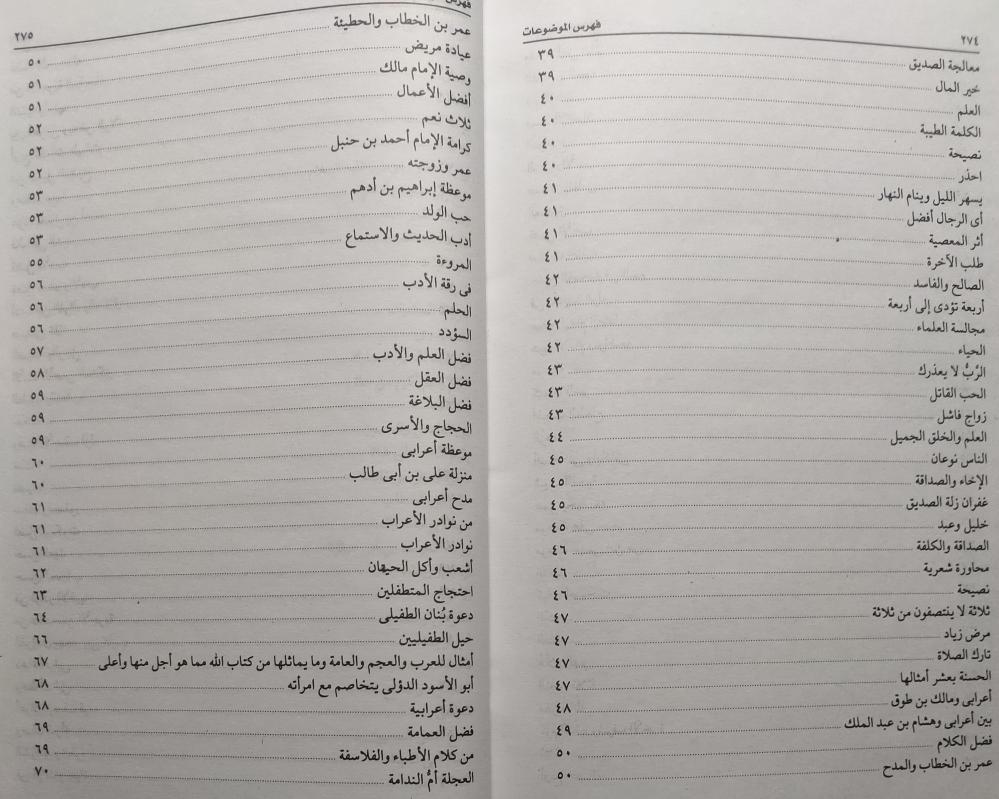 ٢٧٤ فهرس الموضوعات
معالجة الصديق ٣٩
خير المال ٣٩
العلم ٤٠
الكلمة الطيبة ٤٠
نصيحة ٤٠
احذر ٤٠
يسهر الليل وينام النهار ٤١
أى الرجال أفضل ٤١
أثر المعصية ٤١
طلب الآخرة ٤١
الصالح والفاسد ٤٢
أربعة تؤدى إلى أربعة ٤٢
مجالسة العلماء ٤٢
الحياء ٤٢
الرَّبُّ لا يعذرك ٤٣
الحب القاتل ٤٣
زواج فاشل ٤٣
العلم والخلق الجميل ٤٤
الناس نوعان ٤٥
الإخاء والصداقة ٤٥
غفران زلة الصديق ٤٥
خليل وعبد ٤٥
الصداقة والكلفة ٤٦
محاورة شعرية ٤٦
نصيحة ٤٦
ثلاثة لا ينتصفون من ثلاثة ٤٧
مرض زياد ٤٧
تارك الصلاة ٤٧
الحسنة بعشر أمثالها ٤٧
أعرابى ومالك بن طوق ٤٨
بين أعرابى وهشام بن عبد الملك ٤٩
فضل الكلام ٥٠
عمر بن الخطاب والمدح ٥٠
فهرس ٢٧٥
عمر بن الخطاب والحطيئة ٥٠
عيادة مريض ٥١
وصية الإمام مالك ٥١
أفضل الأعمال ٥٢
ثلاث نعم ٥٢
كرامة الإمام أحمد بن حنبل ٥٢
عمر وزوجته ٥٣
موعظة إبراهيم بن أدهم ٥٣
حب الولد ٥٣
أدب الحديث والاستماع ٥٥
المروءة ٥٦
فى رقة الأدب ٥٦
الحلم ٥٦
السؤدد ٥٧
فضل العلم والأدب ٥٨
فضل العقل ٥٩
فضل البلاغة ٥٩
الحجاج والأسرى ٥٩
موعظة أعرابى ٦٠
منزلة على بن أبى طالب ٦٠
مدح أعرابى ٦١
من نوادر الأعراب ٦١
نوادر الأعراب ٦١
أشعب وأكل الحيهان ٦٢
احتجاج المتطفلين ٦٣
دعوة بُنان الطفيلى ٦٤
حيل الطفيليين ٦٦
أمثال للعرب والعجم والعامة وما يماثلها من كتاب الله مما هو أجل منها وأعلى ٦٧
أبو الأسود الدؤلى يتخاصم مع امرأته ٦٨
دعوة أعرابية ٦٨
فضل العمامة ٦٩
من كلام الأطباء والفلاسفة ٦٩
العجلة أمُّ الندامة ٧٠